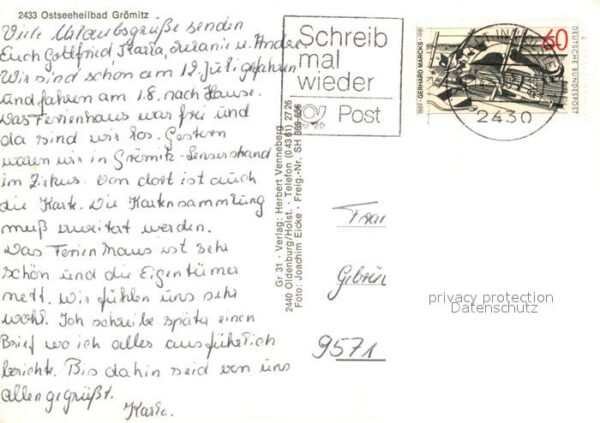 2433 Ostseeheilbad Grömitz
Viele Urlaubsgrüße senden
Euch Gottfried, Karla, u. Andre.
Wir sind schon am 12. Juli gefahren
und fahren am 1.8. nach Hause.
Das Ferienhaus war frei und
da sind wir los. Gestern
waren wir in Grömitz-Lensterstrand
im Zirkus. Von dort ist auch
die Karte. Die Kartensammlung
muß erweitert werden.
Das Ferienhaus ist sehr
schön und die Eigentümer
nett. Wir fühlen uns sehr
wohl. Ich schreibe später einen
Brief wo ich alles ausführlich
berichte. Bis dahin seid von uns
allen gegrüßt.
Karla.
Gr 31 · Verlag: Herbert Venneberg
2440 Oldenburg/Holst. · Telefon (0 43 61) 27 26
Foto: Joachim Eicke · Freig.-Nr. SH
Schreib
mal
wieder
Post
1889 · GERHARD MARCKS · 1981
60
DEUTSCHE BUNDESPOST
2430
Frau
9571
privacy protection
Datenschutz